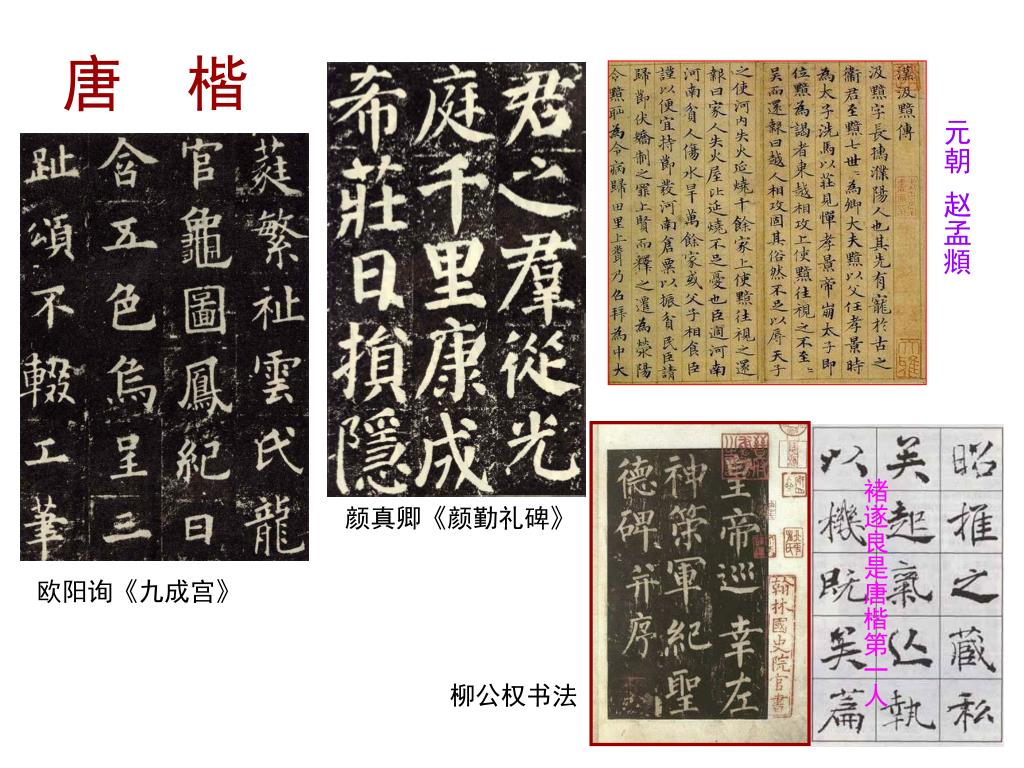 唐 楷
蕤繁祉雲氏龍
官龜圖鳳紀日
含五色烏呈三
趾頌不輟工筆
欧阳询《九成宫》
君之羣從光
庭千里康成
希莊日損隱
颜真卿《颜勤礼碑》
漢汲黯傳
汲黯字長孺濮陽人也其先有寵於古之
衞君至黯七世〻為卿大夫黯以父任孝景時
為太子洗馬以莊見憚孝景帝崩太子即
位黯為謁者東越相攻上使黯往視之不至〻
吳而還報曰越人相攻固其俗然不足以辱天子
之使河内失火延燒千餘家上使黯往視之還
報曰家人失火屋比延燒不足憂也臣過河南
河南貧人傷水旱萬餘家或父子相食臣
謹以便宜持節發河南倉粟以振貧民臣請
歸節伏矯制之罪上賢而釋之遷為滎陽
令黯恥為令病歸田里上聞乃召拜為中大
元朝 赵孟頫
皇帝巡幸左
神策軍紀聖
德碑并序
翰林國史院官書
柳公权书法
昭推之蔵私
起氣執
以機既篇
褚遂良是唐楷第一人